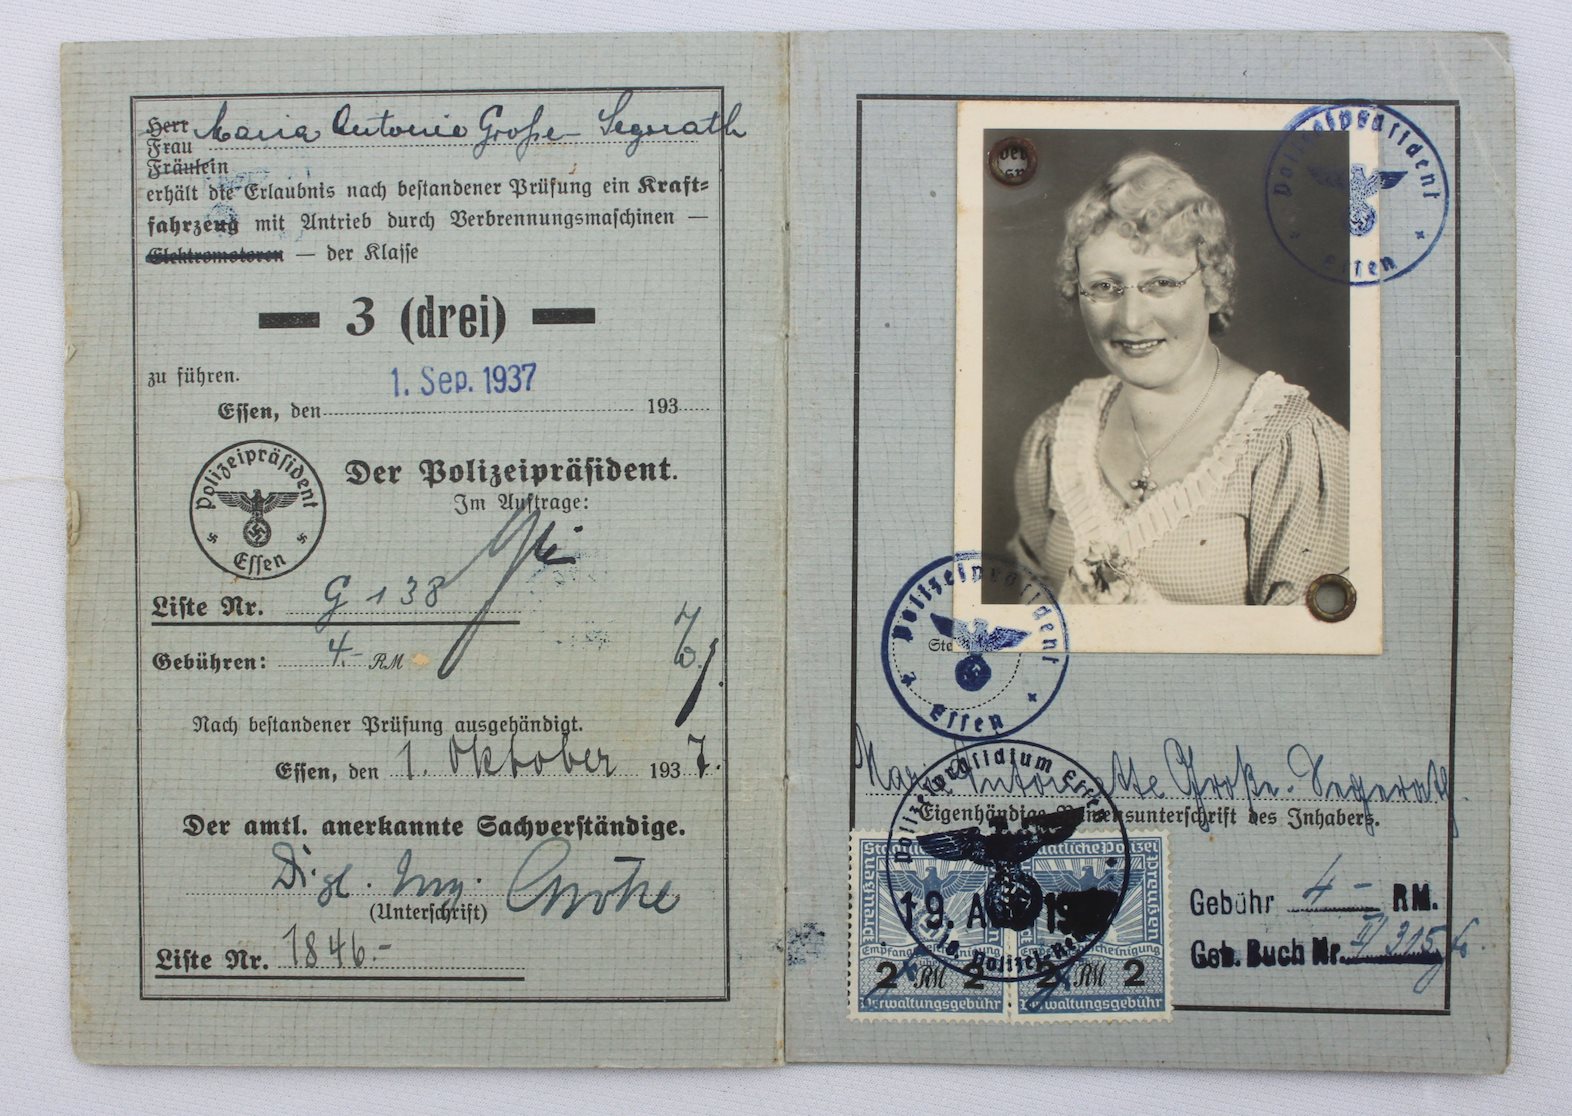 Herr Maria Antonie Große-Segerath
Frau
Fräulein
erhält die Erlaubnis nach bestandener Prüfung ein Kraft=
fahrzeug mit Antrieb durch Verbrennungsmaschinen —
Elektromotoren — der Klasse
3 (drei)
zu führen.
1. Sep. 1937
Essen, den 193
Polizeipräsident
Essen
Der Polizeipräsident.
Im Auftrage:
Liste Nr. G 138
Gebühren: 4.- RM
Nach bestandener Prüfung ausgehändigt.
Essen, den 1. Oktober 1937.
Der amtl. anerkannte Sachverständige.
Dipl. Ing.
(Unterschrift)
Liste Nr. 1846.-
Polizeipräsident
Essen
Polizeipräsident
Essen
Große-Segerath
Eigenhändige Namensunterschrift des Inhabers.
Polizeipräsidium Essen
19. AUG 19
Staatliche Polizei
Preußen
2 RM 2
Verwaltungsgebühr
2 RM 2
Verwaltungsgebühr
Gebühr 4 - RM.
Geb. Buch Nr.